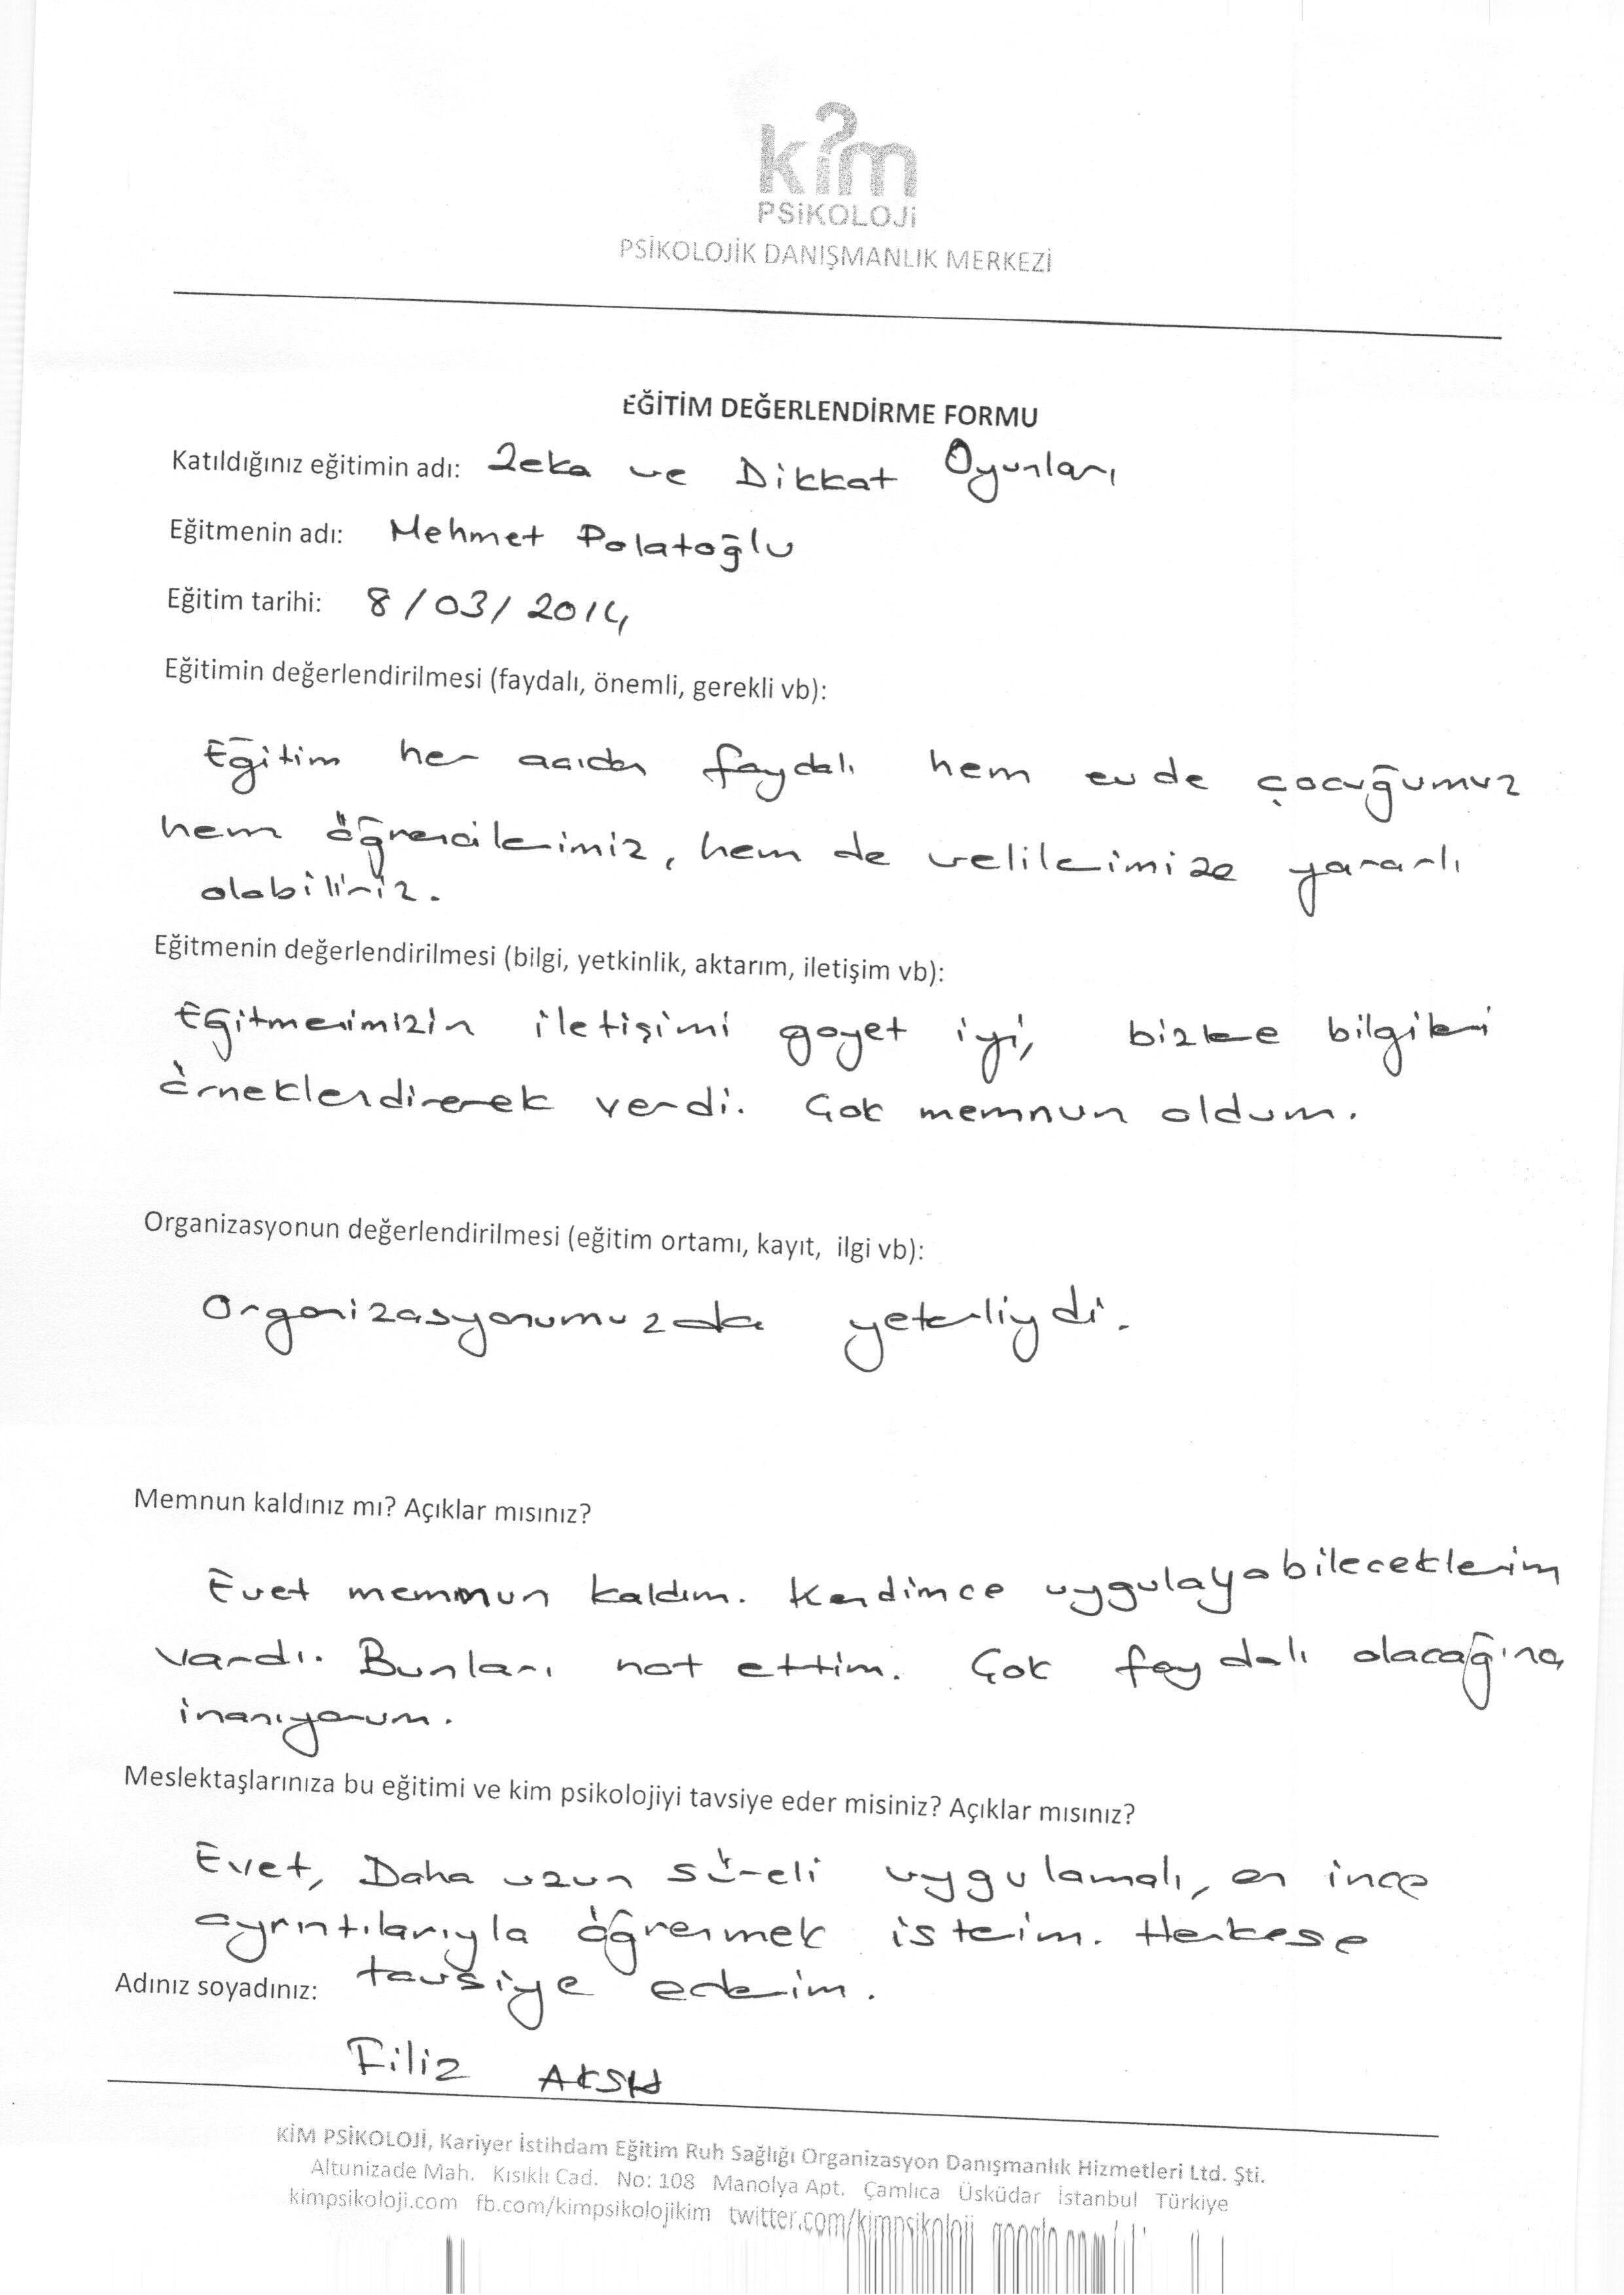 kim
PSiKOLOJi
PSİKOLOJİK DANIŞMANLIK MERKEZİ
EĞİTİM DEĞERLENDİRME FORMU
Katıldığınız eğitimin adı: Zeka ve Dikkat Oyunları
Eğitmenin adı: Mehmet Polatoğlu
Eğitim tarihi: 8/03/2014
Eğitimin değerlendirilmesi (faydalı, önemli, gerekli vb):
Eğitim her açıdan faydalı hem evde çocuğumuz
hem öğrencilerimiz, hem de velilerimize yararlı
olabiliriz.
Eğitmenin değerlendirilmesi (bilgi, yetkinlik, aktarım, iletişim vb):
Eğitmenimizin iletişimi gayet iyi, bizlere bilgileri
örneklendirerek verdi. Çok memnun oldum.
Organizasyonun değerlendirilmesi (eğitim ortamı, kayıt, ilgi vb):
Organizasyonumuzda yeterliydi.
Memnun kaldınız mı? Açıklar mısınız?
Evet memnun kaldım. Kendimce uygulayabileceklerim
vardı. Bunları not ettim. Çok faydalı olacağına
inanıyorum.
Meslektaşlarınıza bu eğitimi ve kim psikolojiyi tavsiye eder misiniz? Açıklar mısınız?
Evet, Daha uzun süreli uygulamalı, en ince
ayrıntılarıyla öğrenmek isterim. Herkese
tavsiye ederim.
Adınız soyadınız:
Filiz
KİM PSİKOLOJİ, Kariyer İstihdam Eğitim Ruh Sağlığı Organizasyon Danışmanlık Hizmetleri Ltd. Şti.
Altunizade Mah. Kısıklı Cad. No: 108 Manolya Apt. Çamlıca Üsküdar İstanbul Türkiye
kimpsikoloji.com fb.com/kimpsikolojikim twitter.com/kimpsikoloji